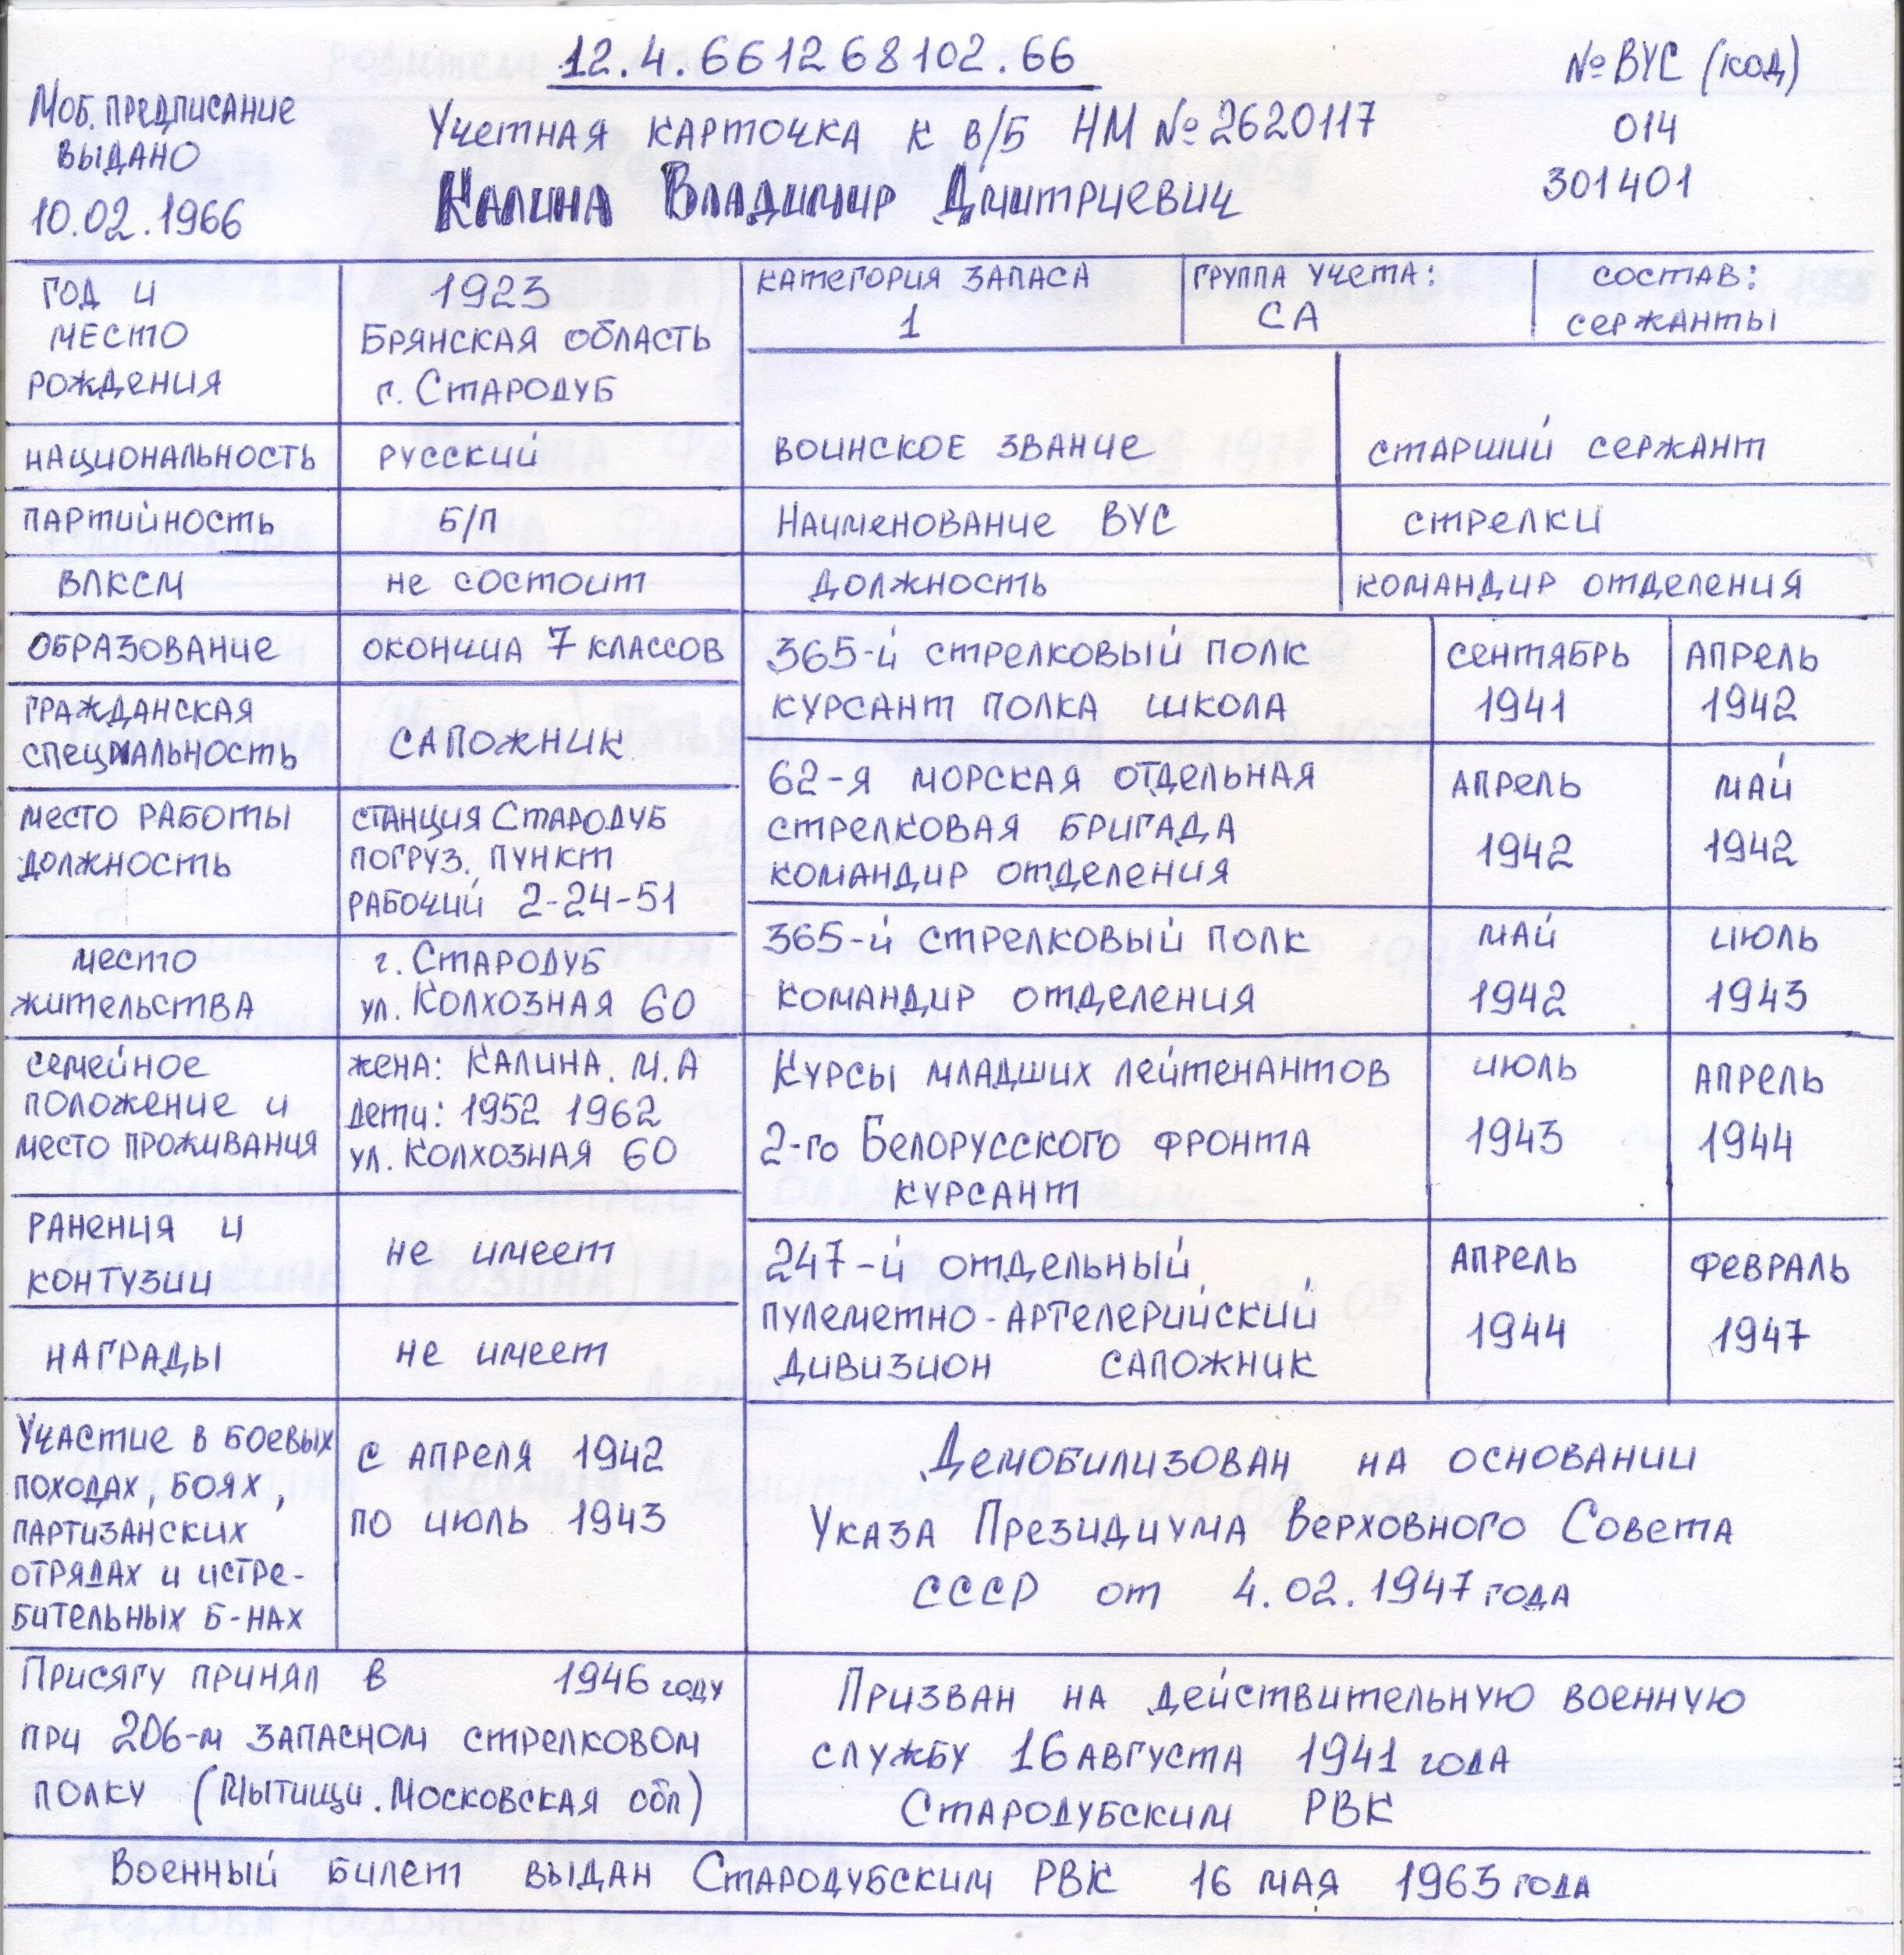 12.4.661268102.66
№ ВУС (код)
Моб. предписание
выдано
10.02.1966
Учетная карточка к в/б НМ № 2620117
Калина Владимир Дмитриевич
014
301401
год и
место
рождения
1923
Брянская область
г. Стародуб
категория запаса
1
группа учета:
СА
состав:
сержанты
национальность
русский
воинское звание
старший сержант
партийность
б/п
Наименование ВУС
стрелки
ВЛКСМ
не состоит
должность
командир отделения
образование
окончил 7 классов
365-й стрелковый полк
курсант полка школа
сентябрь
1941
апрель
1942
гражданская
специальность
сапожник
62-я морская отдельная
стрелковая бригада
командир отделения
апрель
1942
май
1942
место работы
должность
станция Стародуб
погруз. пункт
рабочий 2-24-51
365-й стрелковый полк
командир отделения
май
1942
июль
1943
место
жительства
г. Стародуб
ул. Колхозная 60
семейное
положение и
место проживания
жена: Калина. М.А
дети: 1952 1962
ул. Колхозная 60
Курсы младших лейтенантов
2-го Белорусского фронта
курсант
июль
1943
апрель
1944
ранения и
контузии
не имеет
247-й отдельный
пулеметно-артелерийский
дивизион сапожник
апрель
1944
февраль
1947
награды
не имеет
Участие в боевых
походах, боях,
партизанских
отрядах и истре-
бительных б-нах
с апреля 1942
по июль 1943
Демобилизован на основании
Указа Президиума Верховного Совета
СССР от 4.02.1947 года
Присягу принял в 1946 году
при 206-м запасном стрелковом
полку (Мытищи. Московская обл)
Призван на действительную военную
службу 16 августа 1941 года
Стародубским РВК
Военный билет выдан Стародубским РВК 16 мая 1963 года